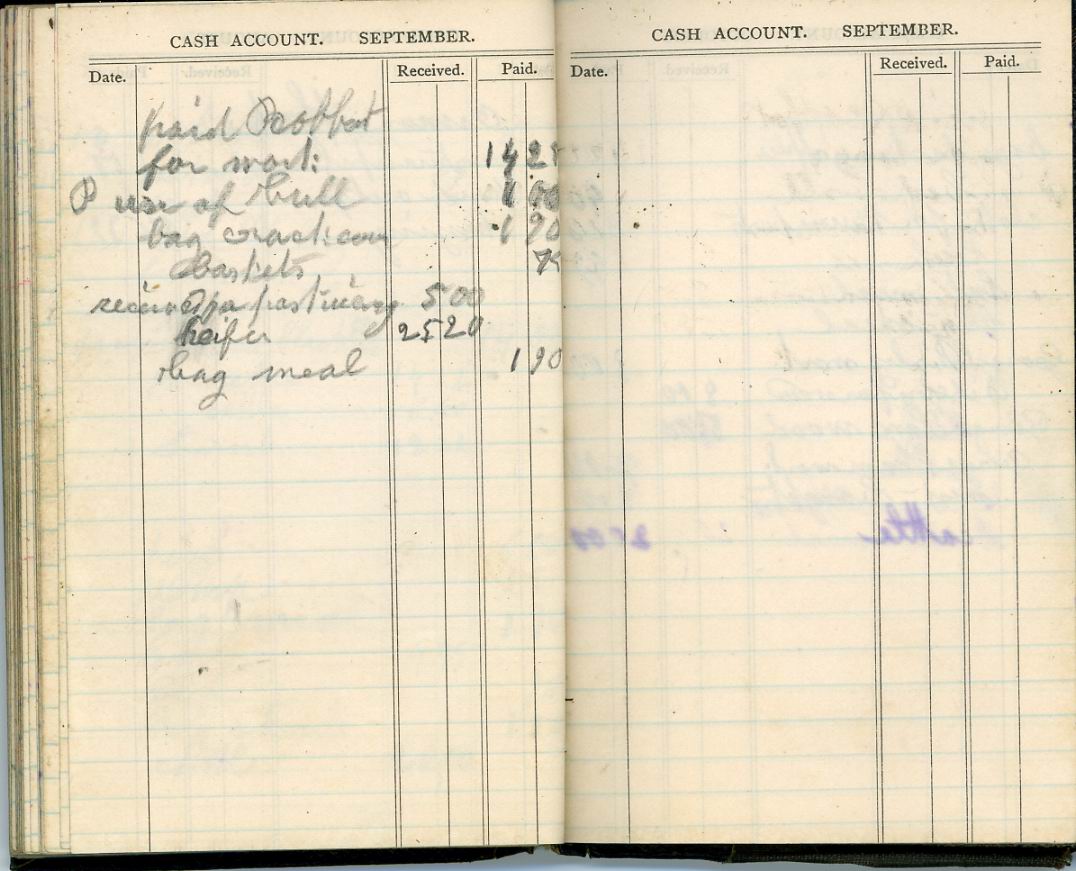 CASH ACCOUNT. SEPTEMBER.
Date. Received. Paid.
paid
for work 14 25
P use of bull 1 00
bag crack corn 1 90
baskets 75
received for pasturing 5 00
heifer 25 20
bag meal 1 90
CASH ACCOUNT. SEPTEMBER.
Date. Received. Paid.